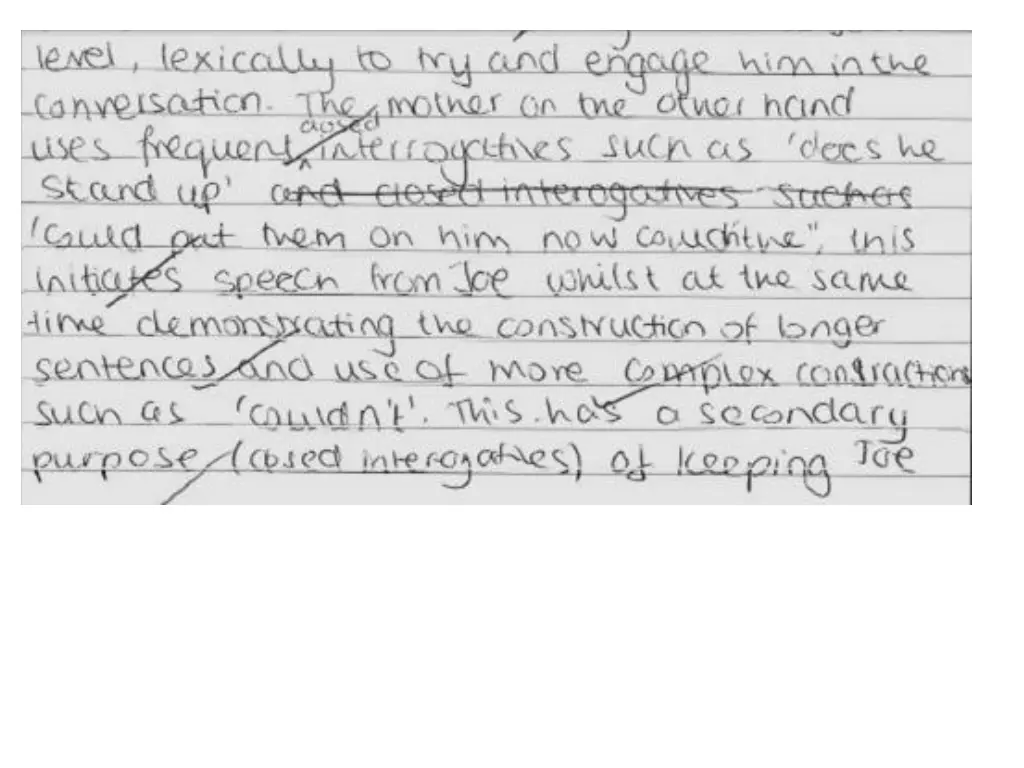 level, lexically to try and engage him in the
conversation. The mother on the other hand
uses frequent closed interrogatives such as 'does he
stand up' and closed interogatives such as
'could put them on him now couldn't we", this
initiates speech from Joe whilst at the same
time demonstrating the construction of longer
sentences and use of more complex contractions
such as 'couldn't'. This has a secondary
purpose (closed interogatives) of keeping Joe